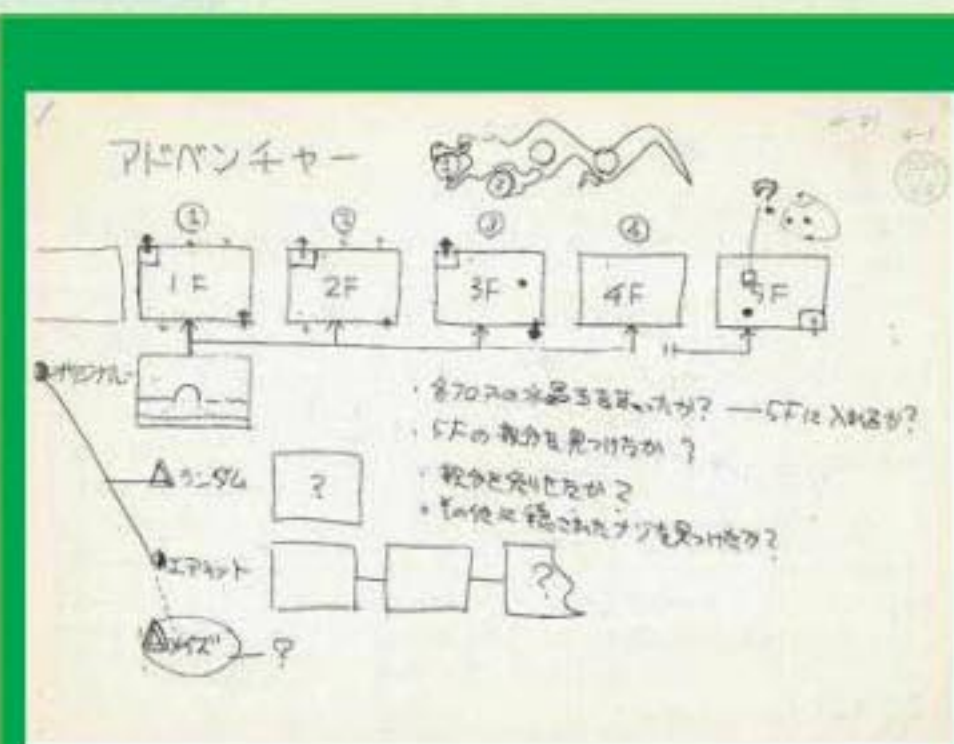 アドベンチャー
① ② ③ ④
1F 2F 3F 4F 5F
オリジナル
・各フロアの水晶玉を
― 5Fに入れるか?
・5Fの 親分を見つけたか ?
・親分を たか ?
・その他に隠されたナゾを見つけたか?
ランダム
?
エアラット
?
メイズ
?